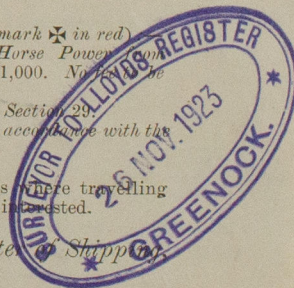 mark ✠ in red)
Horse Power from
1,000. No
be
Section 29.
accordance with the
where travelling
interested.
of Shipping,
SURVEYOR TO LLOYDS REGISTER
26 NOV. 1923
* GREENOCK. *